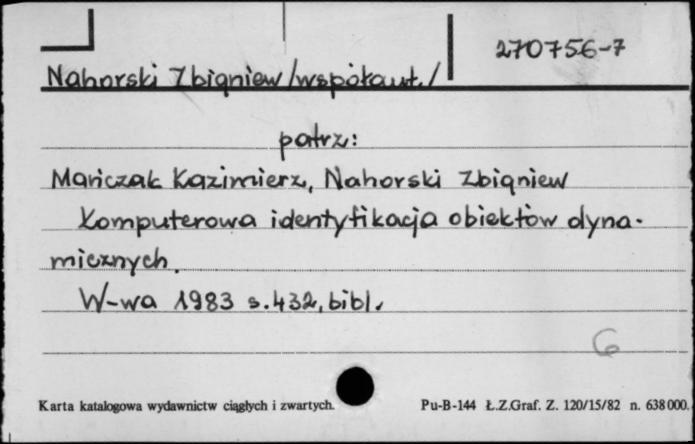 270756-7
Nahorski Zbigniew /współaut./
patrz:
Mańczak Kazimierz, Nahorski Zbigniew
Komputerowa identyfikacja obiektów dyna-
micznych.
W-wa 1983 s.432, bibl.
6
Karta katalogowa wydawnictw ciągłych i zwartych. Pu-B-144 Ł.Z.Graf. Z. 120/15/82 n. 638000.